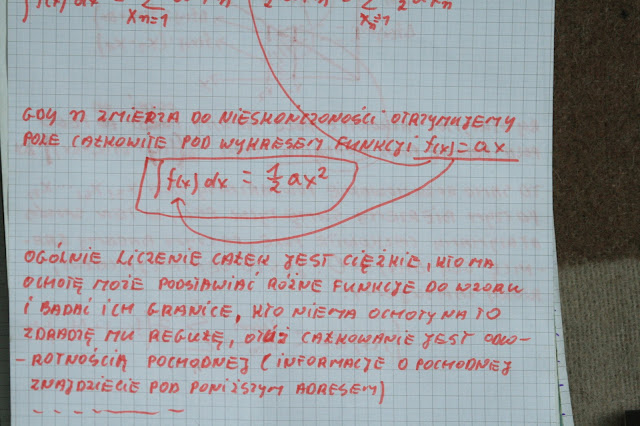 ∫f(x)dx = Σ
Xn=1
Xn=1
GDY n ZMIERZA DO NIESKOŃCZONOŚCI OTRZYMUJEMY
POLE CAŁKOWITE POD WYKRESEM FUNKCJI f(x) = ax
∫f(x)dx = 1/2 ax²
OGÓLNIE LICZENIE CAŁEK JEST CIĘŻKIE, KTO MA
OCHOTĘ MOŻE PODSTAWIAĆ RÓŻNE FUNKCJE DO WZORU
I BADAĆ ICH GRANICE, KTO NIEMA OCHOTY NA TO
ZDRADZĘ MU REGUŁĘ, OTÓŻ CAŁKOWANIE JEST ODW-
-ROTNOŚCIĄ POCHODNEJ (INFORMACJE O POCHODNEJ
ZNAJDZIECIE POD PONIŻSZYM ADRESEM)